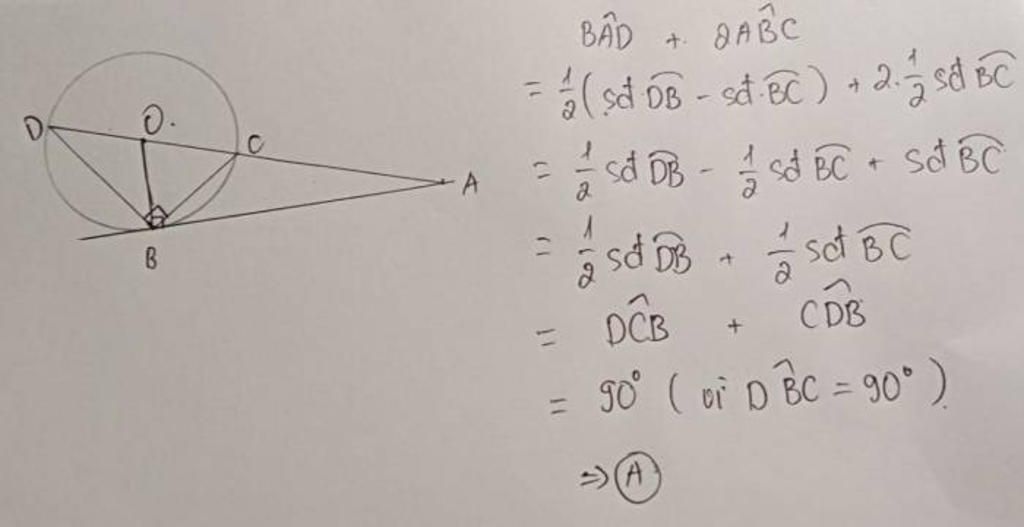 D
O.
C
A
B
BÂD + 2AB̂C
= 1/2 (sđ D͡B - sđ B͡C) + 2. 1/2 sđ B͡C
= 1/2 sđ D͡B - 1/2 sđ B͡C + sđ B͡C
= 1/2 sđ D͡B + 1/2 sđ B͡C
= DĈB + CD̂B
= 90° (vì DB̂C = 90°)
⇒ Ⓐ